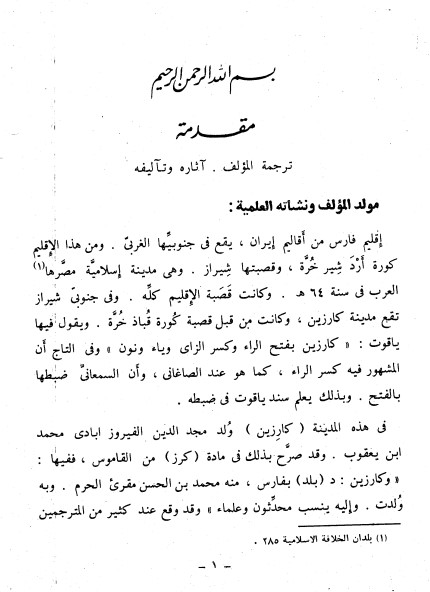 بسم الله الرحمن الرحيم
مقدمة
ترجمة المؤلف . آثاره وتآليفه
مولد المؤلف ونشاته العلمية :
إقليم فارس من أقاليم إيران ، يقع فى جنوبيّها الغربىّ . ومن هذا الإقليم
كورة أرْدَ شِير خُرَّة ، وقصبتها شِيراز . وهى مدينة إسلاميَّة مصَّرها(١)
العرب فى سنة ٦٤ هـ . وكانت قَصَبة الإقليم كلّه . وفى جنوبىّ شيراز
تقع مدينة كارزين ، وكانت مِن قبل قصبة كُورة قُباذ خُرَّة . ويقول فيها
ياقوت : « كارزين بفتح الراء وكسر الزاى وياء ونون » وفى التاج أن
المشهور فيه كسر الراء ، كما هو عند الصاغانى ، وأن السمعانىّ ضبطها
بالفتح . وبذلك يعلم سند ياقوت فى ضبطه .
فى هذه المدينة (كارِزين) وُلد مجد الدين الفيروز ابادى محمد
ابن يعقوب . وقد صرَّح بذلك فى مادة (كرز) من القاموس ، ففيها :
« وكارزين : د (بلد) بفارس ، منه محمد بن الحسن مقرئ الحرم . وبه
وُلدت . وإليه ينسب محدِّثون وعلماء » وقد وقع عند كثير من المترجمين
(١) بلدان الخلافة الاسلامية ٢٨٥ .
- ١ -